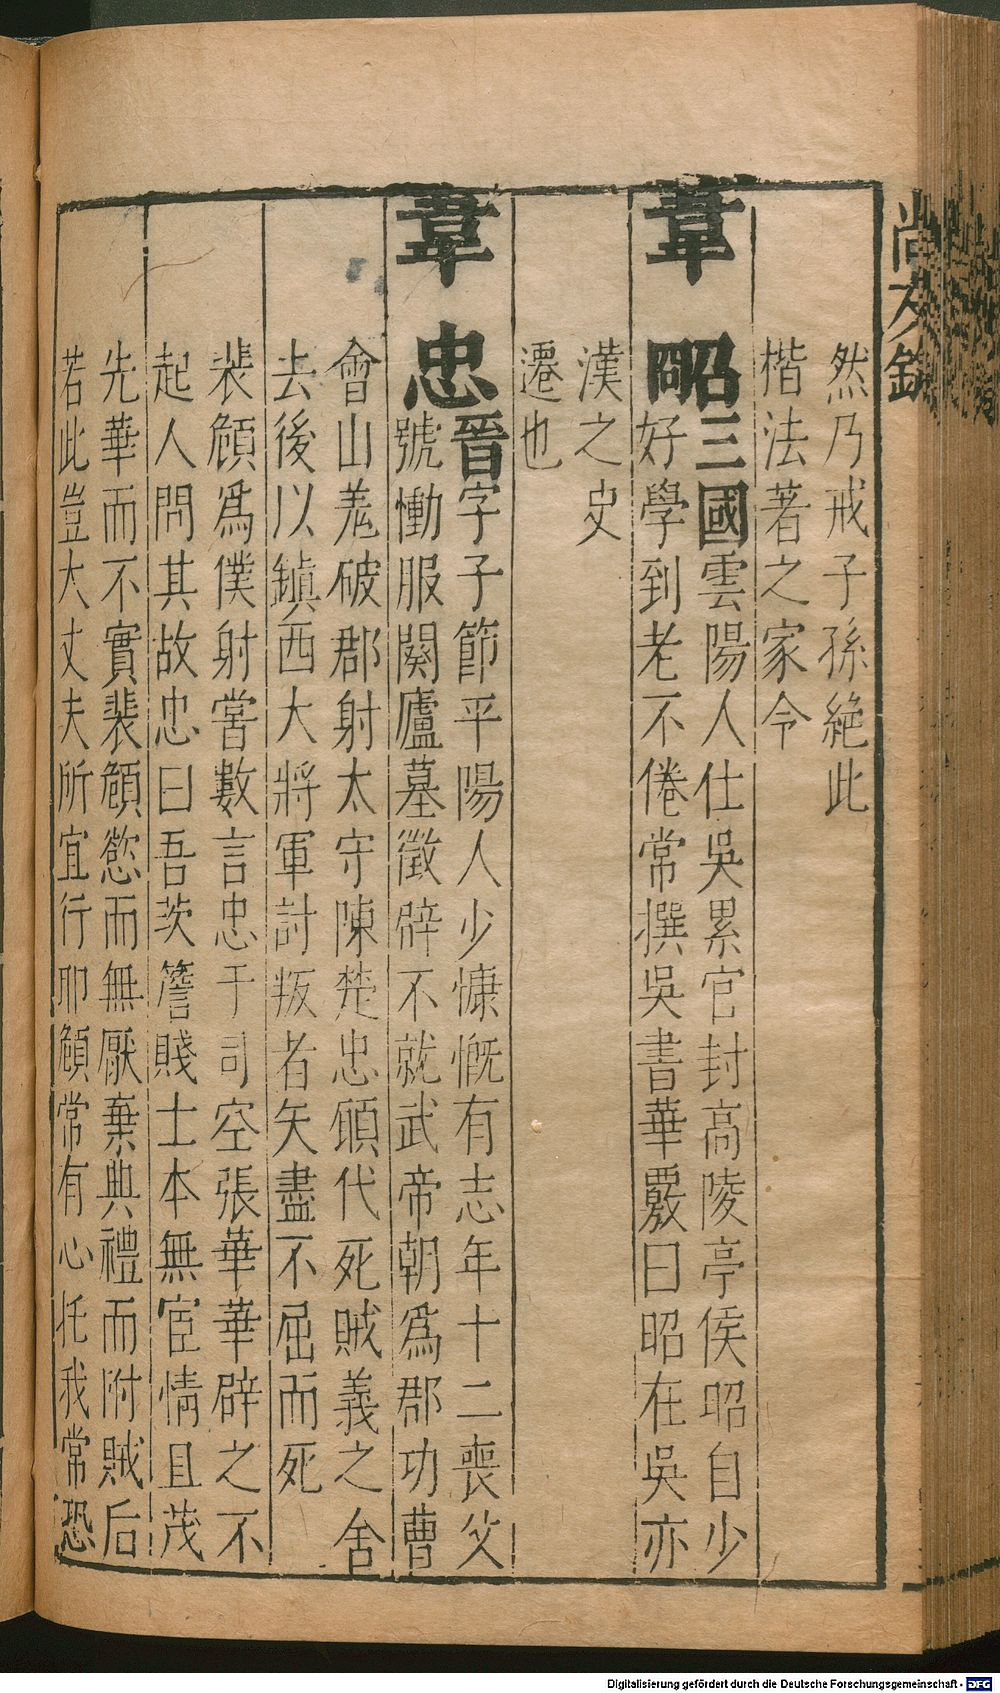 尚友錄
然乃戒子孫絶此
楷法著之家令
韋昭三國雲陽人仕吳累官封高陵亭侯昭自少
好學到老不倦常撰吳書華覈曰昭在吳亦
漢之史
遷也
韋忠晉字子節平陽人少慷慨有志年十二喪父
號慟服闋廬墓徵辟不就武帝朝爲郡功曹
會山羌破郡射太守陳楚忠願代死賊義之舍
去後以鎮西大將軍討叛者矢盡不屈而死
裴頠爲僕射嘗數言忠于司空張華華辟之不
起人問其故忠曰吾茨簷賤士本無宦情且茂
先華而不實裴頠慾而無厭棄典禮而附賊后
若此豈大丈夫所宜行耶頠常有心托我常恐
Digitalisierung gefördert durch die Deutsche Forschungsgemeinschaft - DFG